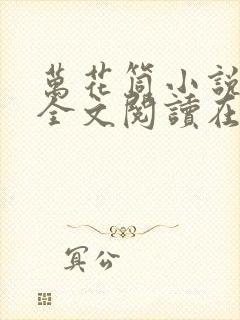 萬花筒小說
全文閱讀在
冥公